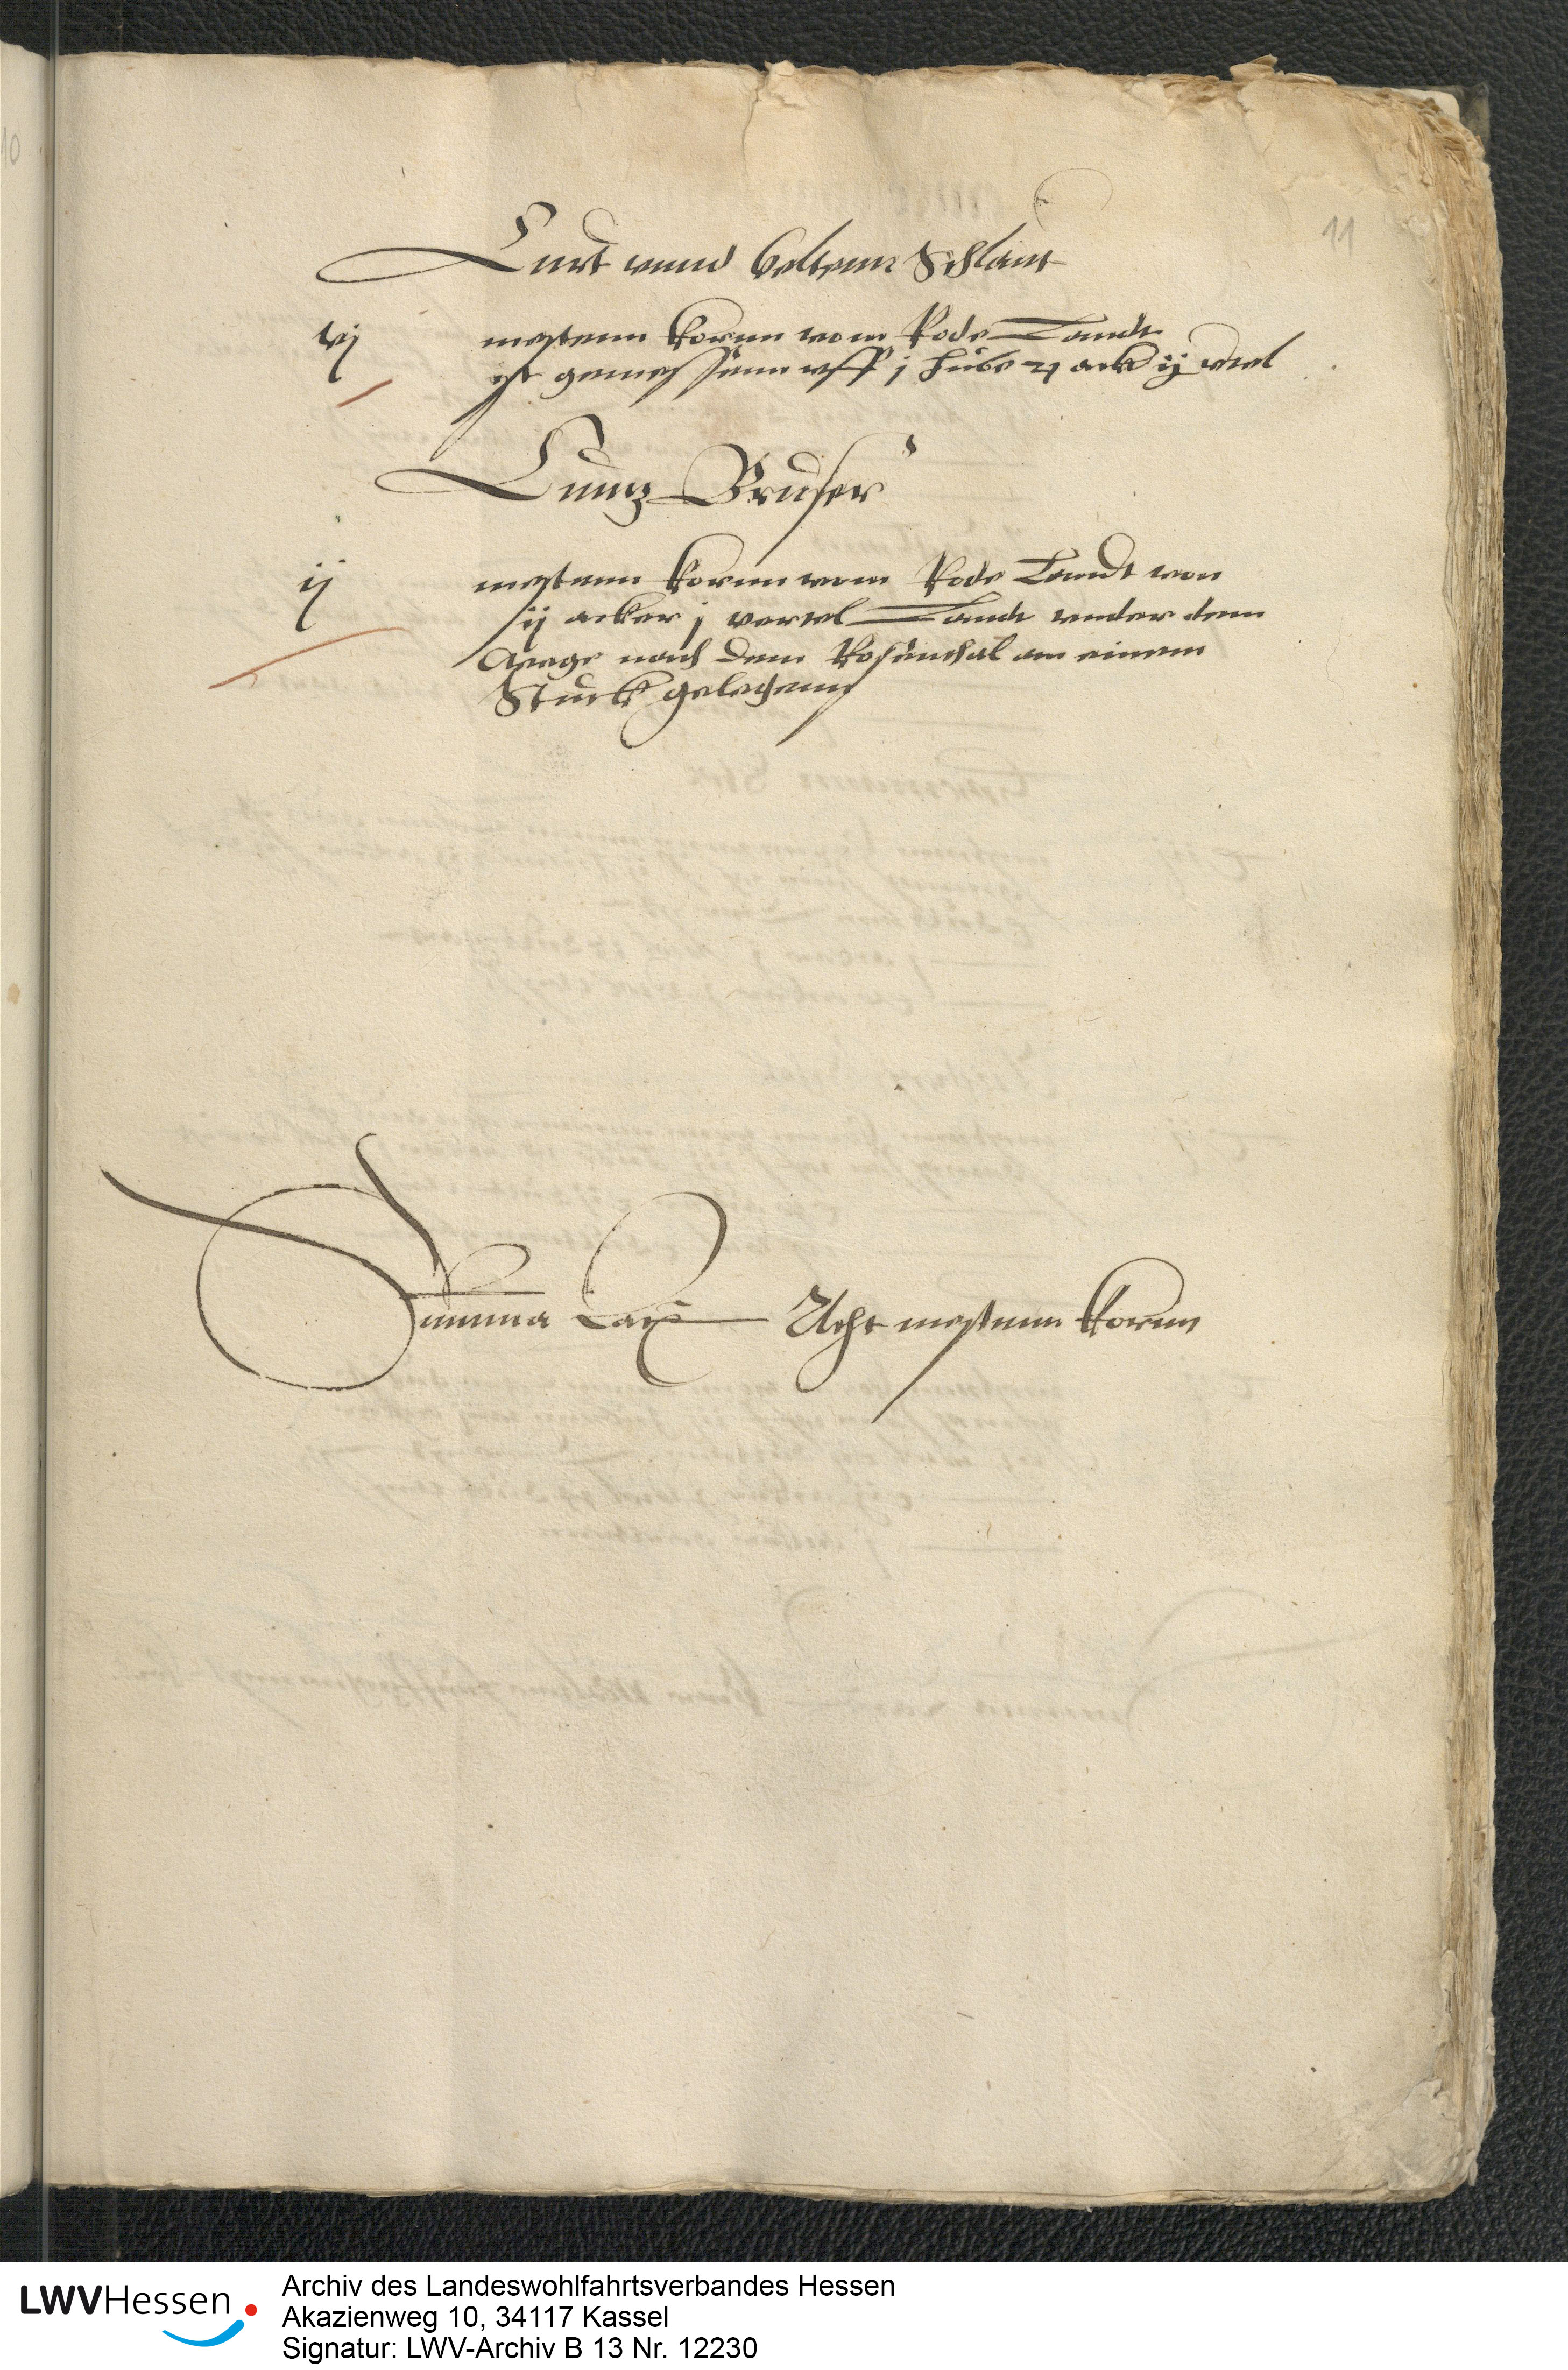 10
11
Curt unnd Veltenn Schlaut
vj mestenn Kornn vom Rode Landt
ist gemessenn uff j Hube 21 ack ij vertel
Cuntz Bruser
ij mestenn Kornn vom Rode Landt von
ij acker j vertel Landt under dem
Wege nach dem Rosenthal an einem
Stuck gelegenn
Summa Lat. Acht mestenn Kornn
LWVHessen
Archiv des Landeswohlfahrtsverbandes Hessen
Akazienweg 10, 34117 Kassel
Signatur: LWV-Archiv B 13 Nr. 12230